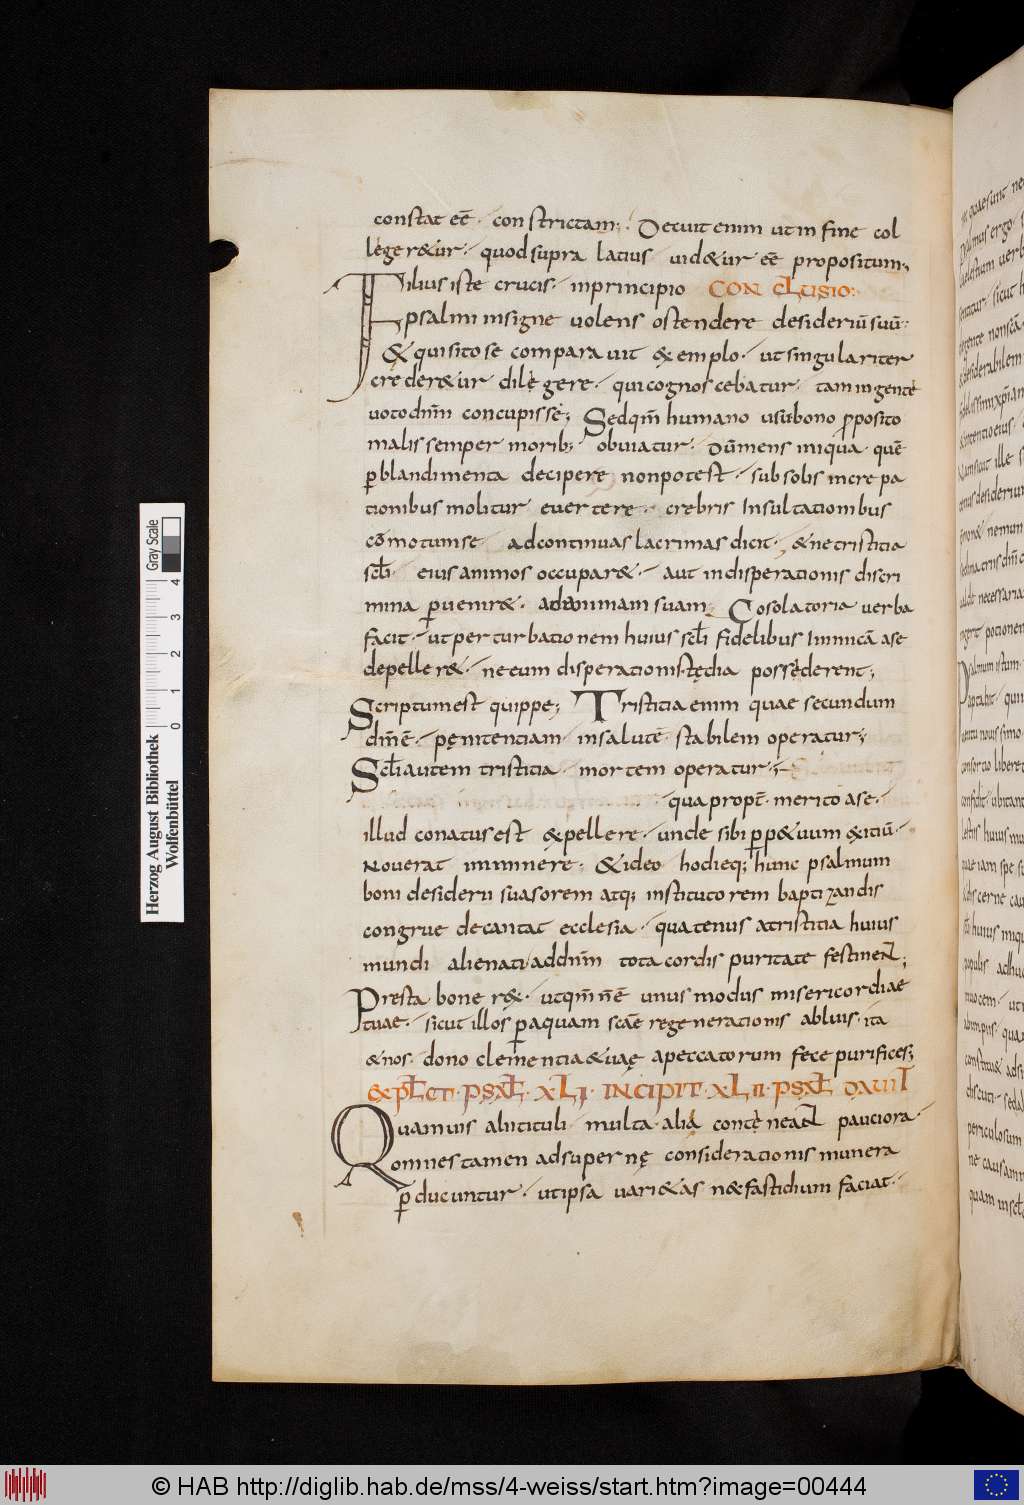 constat eē· constrictam; Decuit enim ut in fine col
leger&ur· quod supra latius uid&ur eē propositum;
Filius iste crucis· in principio CONCLUSIO:
psalmi insigne uolens ostendere desideriū suū·
& quisito se comparauit exemplo· ut singulariter
creder&ur dilęgere· qui cognoscebatur· tam ingentē
uoto dnm̄ concupisse; Sed qm̄ humano usui bono p̱posito
malis semper morib; obuiatur· Dū mens iniqua· quē
p̱ blandimenta decipere non potest· sub solis increpa
tionibus molitur euertere· crebris Insultationibus
cōmotum se ad continuas lacrimas dicit· & ne tristitia
scłi· eius animos occupar&· aut in disperationis discri
mina p̱uenir&· ad animam suam; Cosolatoria uerba
facit· ut perturbationem huius scłi fidelibus Inimicā a se
depeller&· ne eum disperationis· tędia possęderent;
Scriptum est quippe; Tristitia enim quae secundum
dm̄ ē· pęnitentiam· in salutē· stabilem operatur;
Scłi autem tristitia· mortem operatur;
qua propt̄· merito a se·
illud conatus est expellere· unde sibi p̱p&uum exitiū·
Nouerat imminere· & ideo hodieq; hunc psalmum
boni desiderii suasorem atq; institutorem baptizandis
congrue decantat ecclesia· quatenus a tristitia huius
mundi alienati ad dnm̄ tota cordis puritate festinent;
Presta bone rex· ut qm̄ n̄ ē unus modus misericordiae
tuae· sicut illos p̱ aquam scāe regenerationis abluis· ita
& nos· dono clementiae tuae a peccatorum fece purifices;
EXPŁCIT· PSAŁ· XLI· INCIPIT· XLII· PSAŁ DAUID
Quamuis alii tituli· multa· alia contęneant pauciora·
omnes tamen ad supernę considerationis munera
p̱ducuntur· ut ipsa uari&as ne fastidium faciat·
Herzog August Bibliothek
Wolfenbüttel
0 1 2 3 4
Gray Scale
© HAB http://diglib.hab.de/mss/4-weiss/start.htm?image=00444